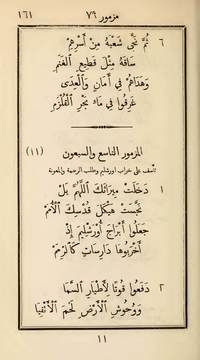 ١٦١ مزمور ٧٩
٦ ثُمَّ نَجَّى شَعْبَهُ مِنْ أَسْرِهِمْ
سَاقَهُ مِثْلَ قَطِيعِ ٱلْغَنَمْ
وَهَدَاهُمْ فِي أَمَانٍ وَٱلْعِدَى
غَرِقُوا فِي مَاءِ بَحْرِ ٱلْقُلْزُمِ
المزمور التاسع والسبعون (١١)
تأسف على خراب اورشليم وطلب الرحمة والمعونة
١ دَخَلَتْ مِيرَاثَكَ ٱللَّهُمَّ بَلْ
نَجَّسَتْ هَيْكَلَ قُدْسِكَ ٱلْأُمَمْ
جَعَلُوا أَبْرَاجَ أُورَشَلِيمَ إِذْ
أَخْرَبُوهَا دَارِسَاتٍ كَٱلرِّمَمْ
٢ دَفَعُوا قُوتًا لِأَطْيَارِ ٱلسَّمَا
وَوُحُوشِ ٱلْأَرْضِ لَحْمَ ٱلْأَتْقِيَا
١١